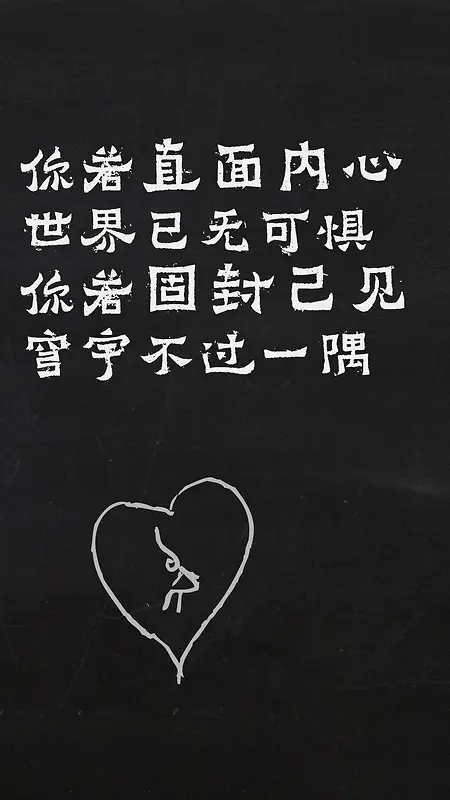 你若直面内心
世界已无可惧
你若固封己见
穹宇不过一隅